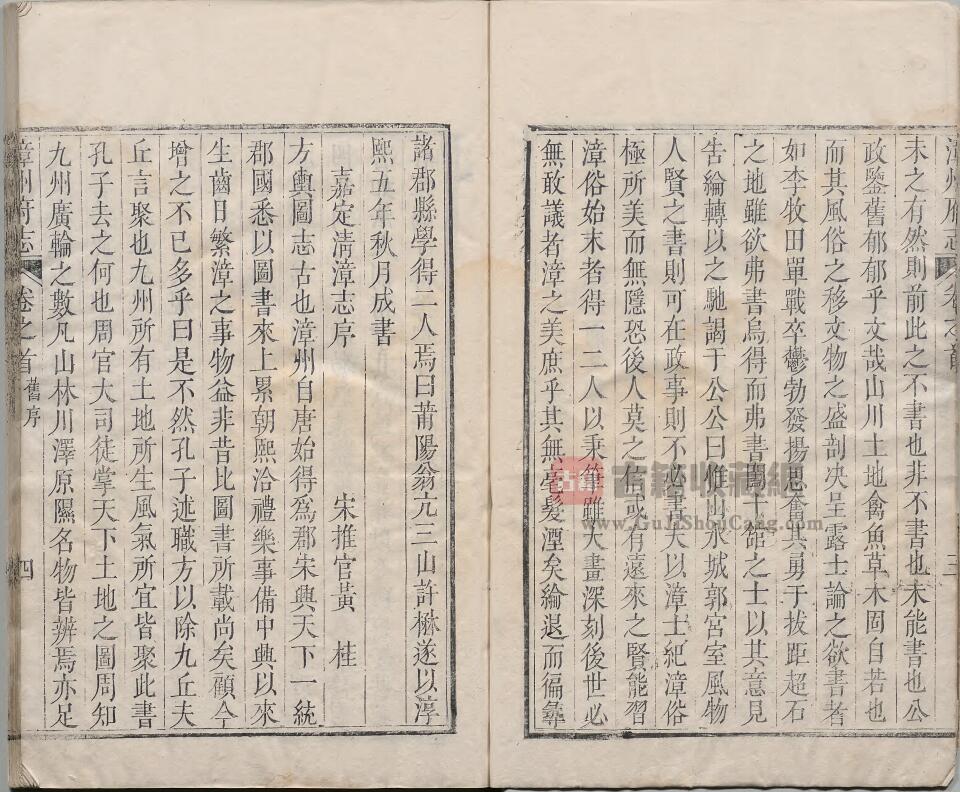 未之有然則前此之不書也非不書也未能書也公
政鑒舊郁郁乎文哉山川土地禽魚草木固自若也
而其風俗之移文物之盛剖决呈露士論之欲書者
如李牧田單戰卒鬱勃發揚思奮其勇于拔距超石
之地雖欲弗書烏得而弗書聞士館之士以其意見
吿綸轉以之馳謁于公公曰惟山水城郭宮室風物
人賢之書則可在政事則不必書夫以漳士紀漳俗
極所美而無隱恐後人莫之信或有遠來之賢能習
漳俗始末者得一二人以秉筆雖大書深刻後世必
無敢議者漳之美庶乎其無毫髮湮矣綸退而徧彝
諸郡縣學得二人焉曰莆陽翁亢三山許楙遂以淳
熙五年秋月成書
嘉定淸漳志序 宋推官黃 桂
方輿圖志古也漳州自唐始得爲郡宋興天下一統
郡國悉以圖書來上累朝熙洽禮樂事備中興以來
生齒日繁漳之事物益非昔比圖書所載尚矣顧今
增之不已多乎曰是不然孔子述職方以除九丘夫
丘言聚也九州所有土地所生風氣所宜皆聚此書
孔子去之何也周官大司徒掌天下土地之圖周知
九州廣輪之數凡山林川澤原隰名物皆辨焉亦足
漳州府志 卷之首 舊序 四
古籍收藏網
www.GuJiShouCang.com